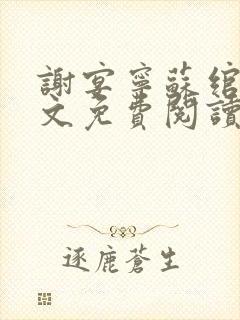 謝宴寧蘇綰
文免費閱讀
逐鹿蒼生